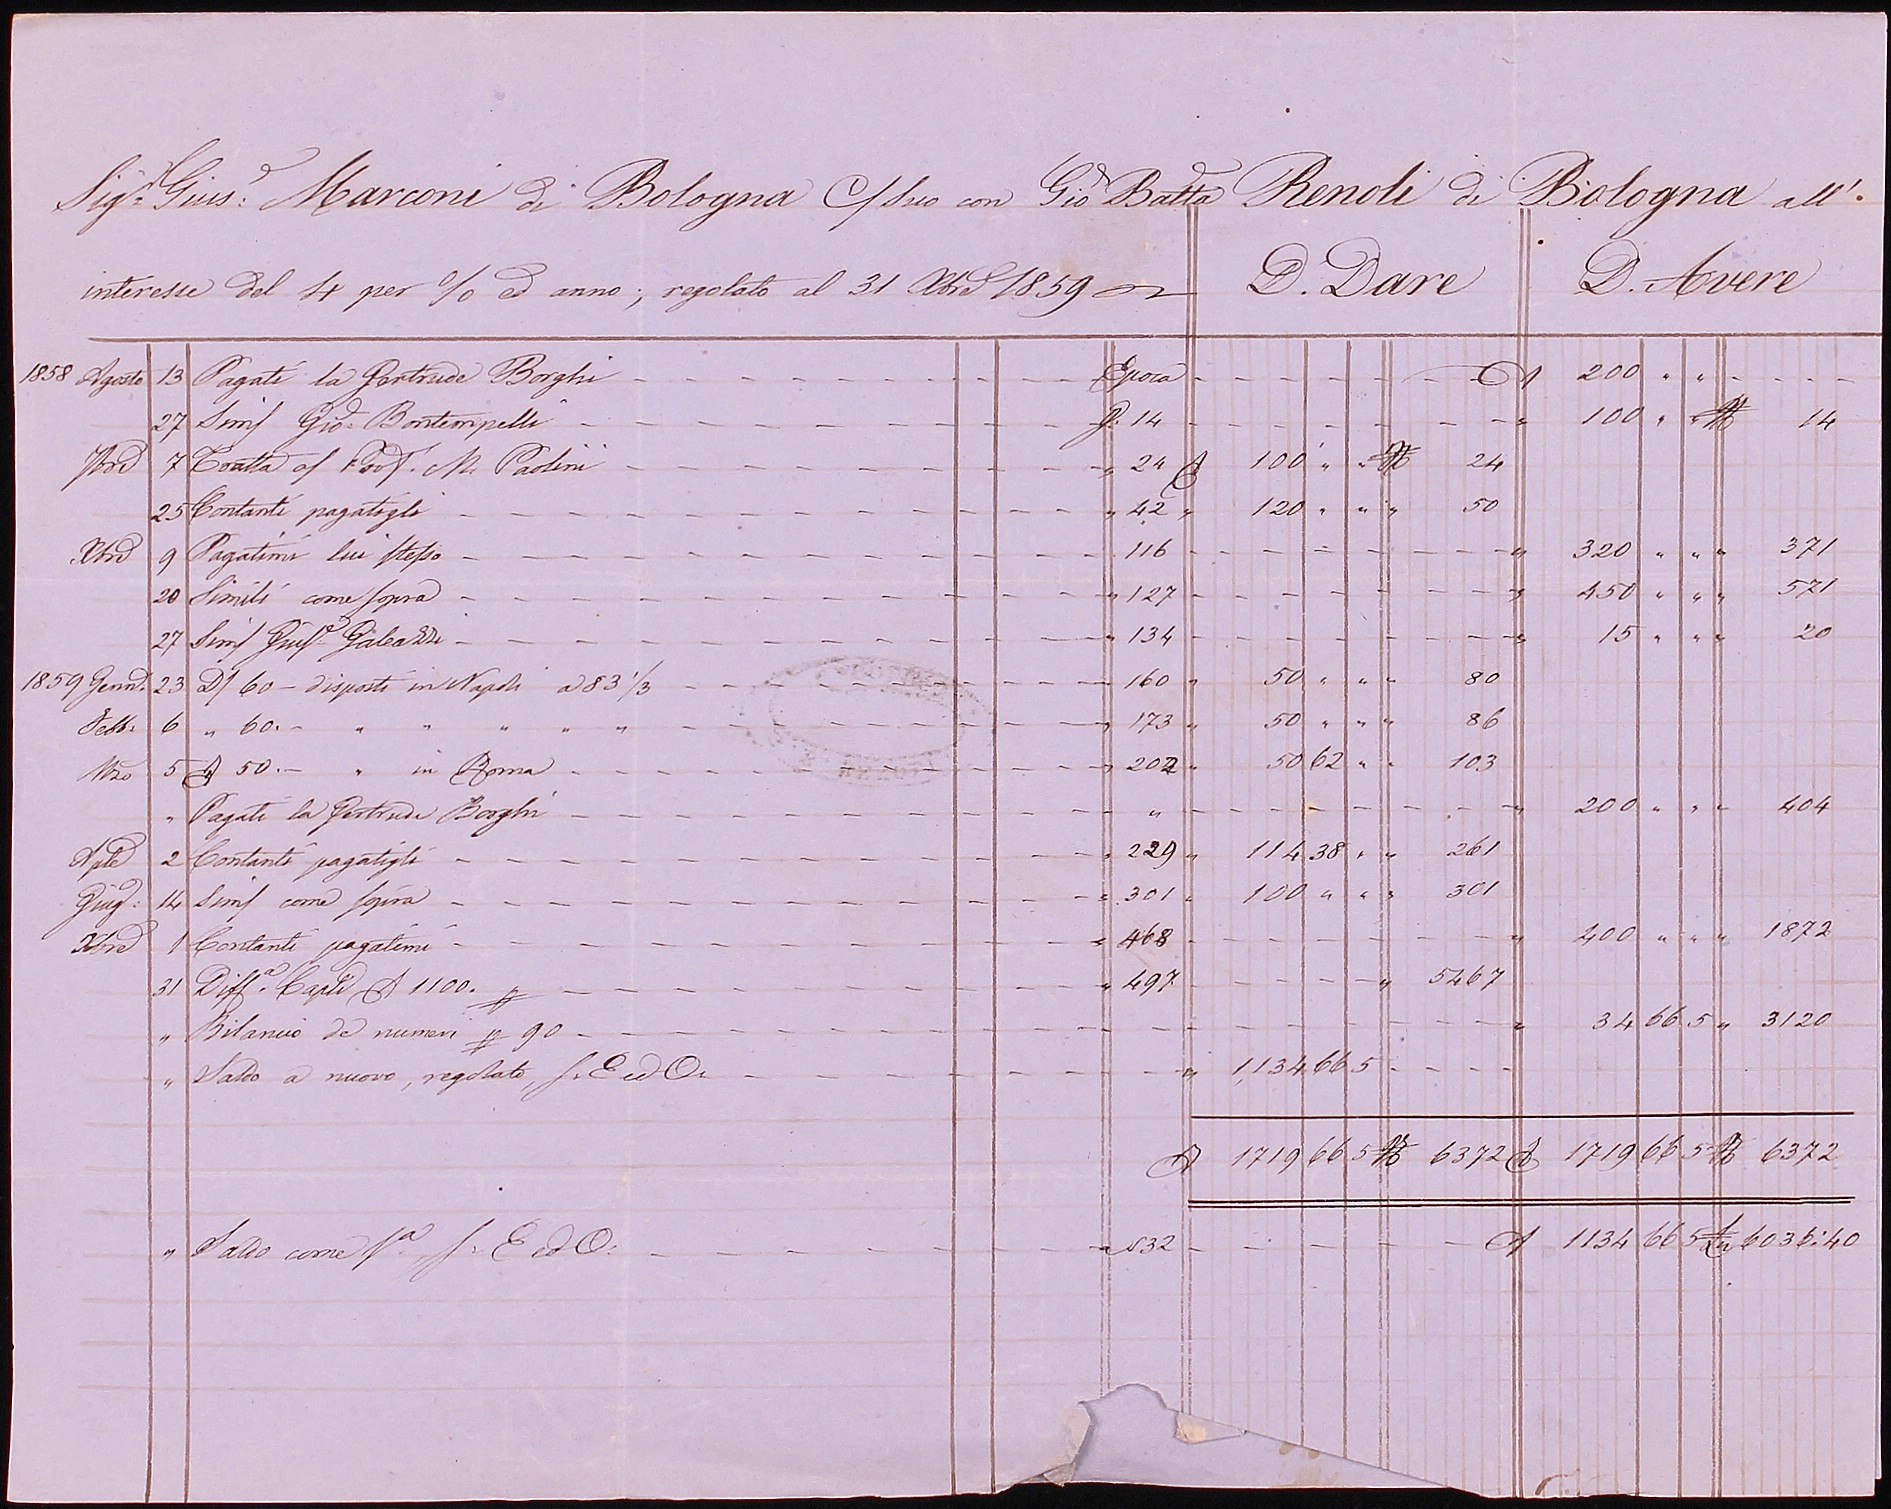 Sigr. Gius: Marconi di Bologna C/ Suo con Gio Batta Renoli di Bologna all'
interesse del 4 per % ed anno; regolato al 31 Xbre 1859 D. Dare D. Avere
1858 Agosto 13 Pagati la Gertrude Borghi Epoca 200 " "
27 Simi Gio. Bontempelli p. 14 " 100 " " 14
7bre 7 Tratta o/ Prof. M. Paolini " 24 100 " " 24
25 Contanti pagatigli " 42 " 120 " " " 50
Xbre 9 Pagatimi lui stesso " 116 " 320 " " " 371
20 Simili come sopra " 127 " 450 " " " 571
27 Simi Gius. Galeazzi " 134 " 15 " " " 20
1859 Genn. 23 D/ 60 – disposti in Napoli a 83 1/3 " 160 " 50 " " " 80
Febb: 6 " 60. – " " " " " " 173 " 50 " " " 86
Mzo 5 50. – " in Roma " 202 " 50 62 " " 103
" Pagati la Gertrude Borghi " " 200 " " " 404
Aple 2 Contanti pagatigli " 229 " 114 38 " " 261
Giug: 14 Simi come sopra " 301 " 100 " " " 301
Xbre 1 Contanti pagatimi " 468 " 400 " " " 1872
31 Diffa. Capli 1100. " 497 " 5467
" Bilancio de numeri p 90 " 34 66 5 " 3120
" Saldo a nuovo, regolato S. E ed O. " 1134 66 5
1719 66 5 6372 1719 66 5 6372
" Saldo come sa. S. E ed O. 532 1134 66 5 6036:40